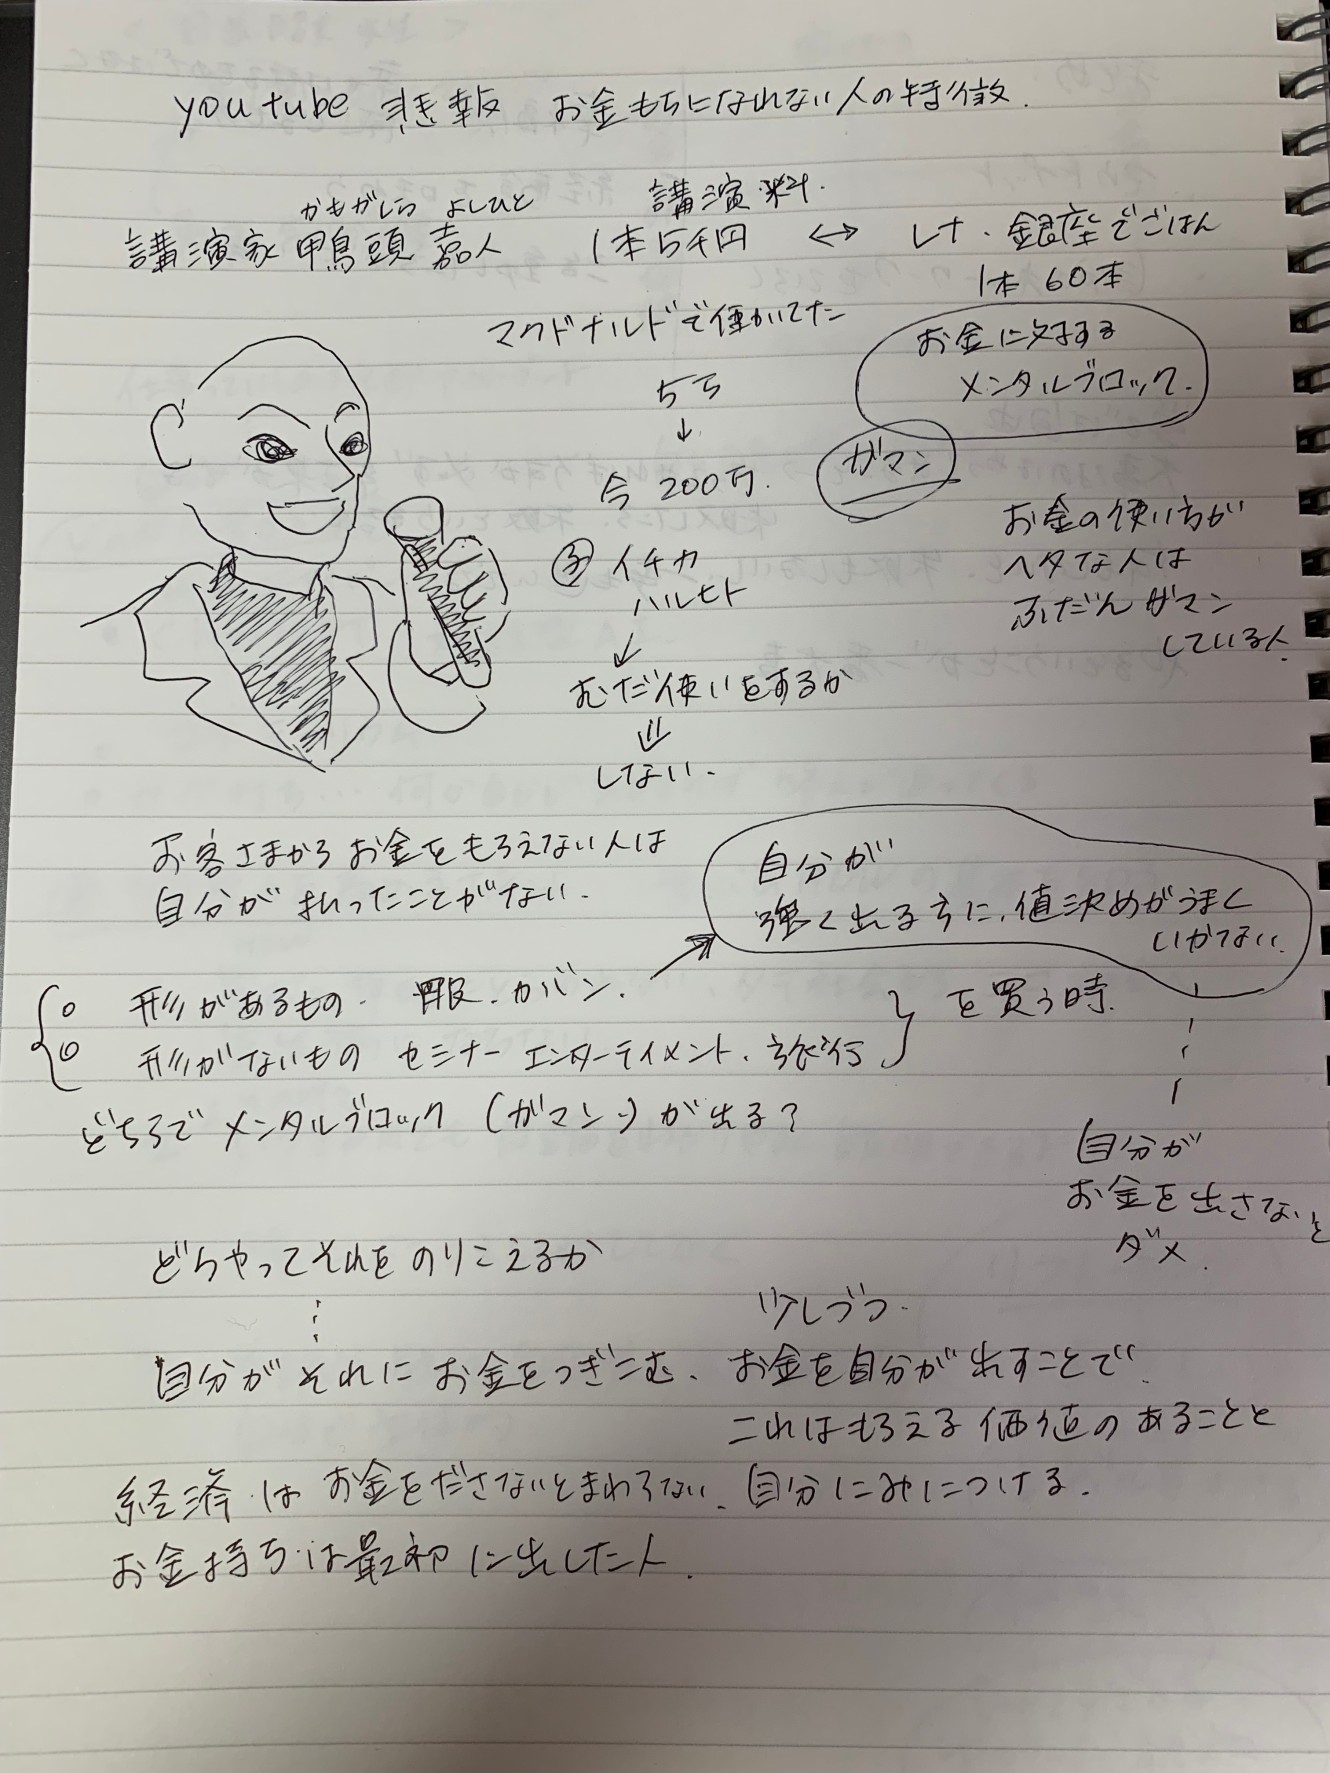 youtube 悲報 お金もちになれない人の特徴.
かもがしら よしひと
講演料.
講演家 鴨頭 嘉人 1本5千円 ↔ レナ.銀座でごはん
1本 60本
マクドナルドで働いてた
お金に対する
メンタルブロック.
5千
↓
ガマン
今 200万.
お金の使い方が
ヘタな人は
ふだんガマン
している人.
子 イチカ
ハルヒト
↓
むだ使いをするか
⇓
しない.
お客さまからお金をもらえない人は
自分が払ったことがない.
自分が
強く出る方に,値決めがうまく
いかない.
○ 形があるもの. 服.カバン.
○ 形がないもの セミナー エンターティメント.旅行
を買う時.
どちらでメンタルブロック (ガマン)が出る?
自分が
お金を出さないと
ダメ.
どうやってそれをのりこえるか
少しづつ.
自分がそれにお金をつぎこむ、お金を自分が出すことで
これはもらえる価値のあることと
自分にみにつける.
経済はお金をださないとまわらない.
お金持ちは最初に出した人.